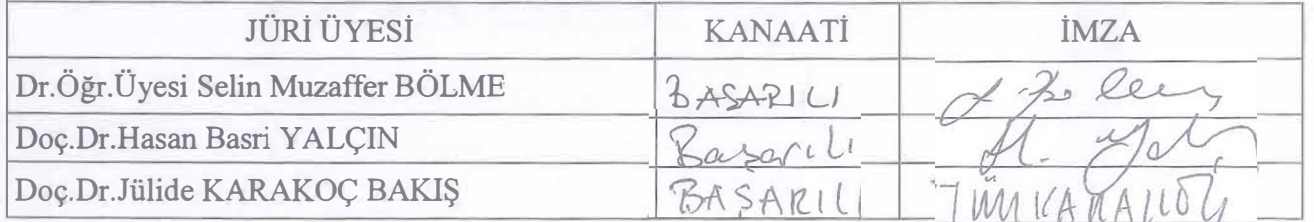 JÜRİ ÜYESİ KANAATİ İMZA
Dr.Öğr.Üyesi Selin Muzaffer BÖLME BAŞARILI
Doç.Dr.Hasan Basri YALÇIN Başarılı
Doç.Dr.Jülide KARAKOÇ BAKIŞ BAŞARILI